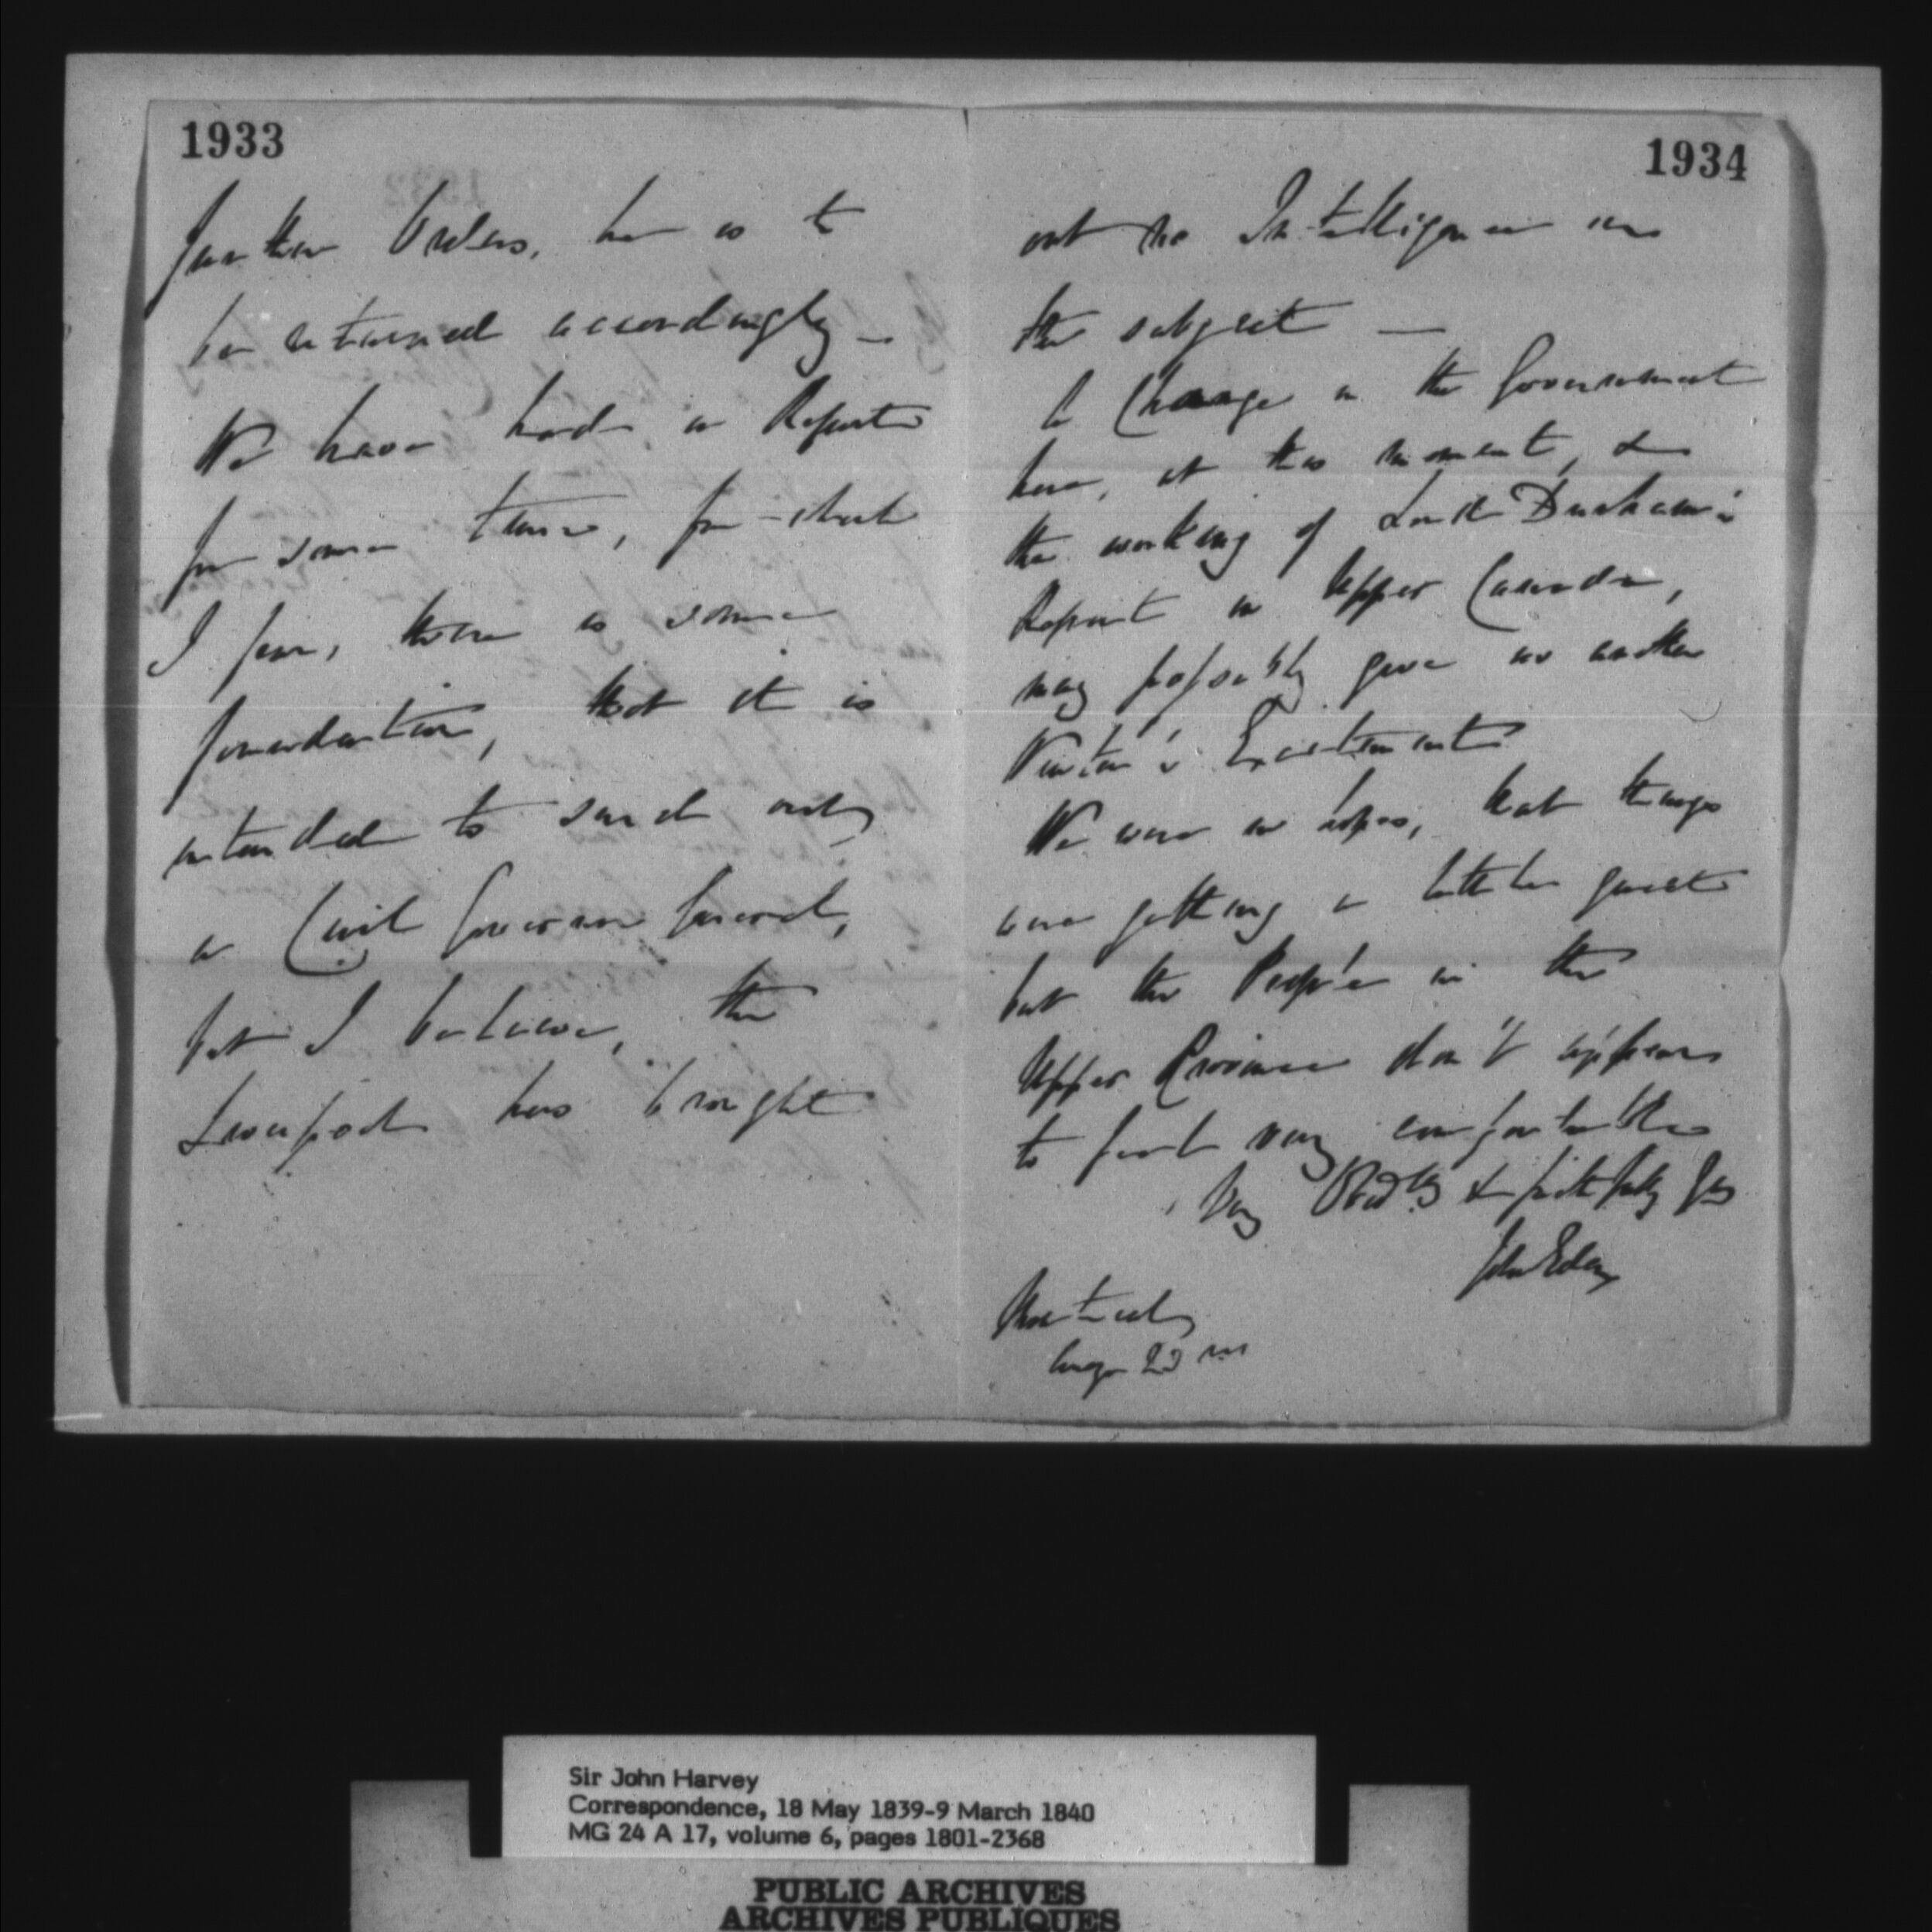 1933
further Orders, he is to
be retained accordingly —
We have had a Report
for some time, for which
I fear, there is some
foundation, that it is
intended to send out,
a Civil Governor General,
but I believe, the
Liverpool has brought
1934
out no Intelligence on
the subject —
A Change in the Government
here, at this moment, &
the working of Lord Durham's
Report in Upper Canada,
may possibly give us another
Winter's Excitement
We were in hopes, that things
were getting a little quiet
but the People in the
Upper Province don't appear
to feel very comfortable
Very & faithfully Yrs
John Eden
Montreal
Augt
Sir John Harvey
Correspondence, 18 May 1839-9 March 1840
MG 24 A 17, volume 6, pages 1801-2368
PUBLIC ARCHIVES
ARCHIVES PUBLIQUES